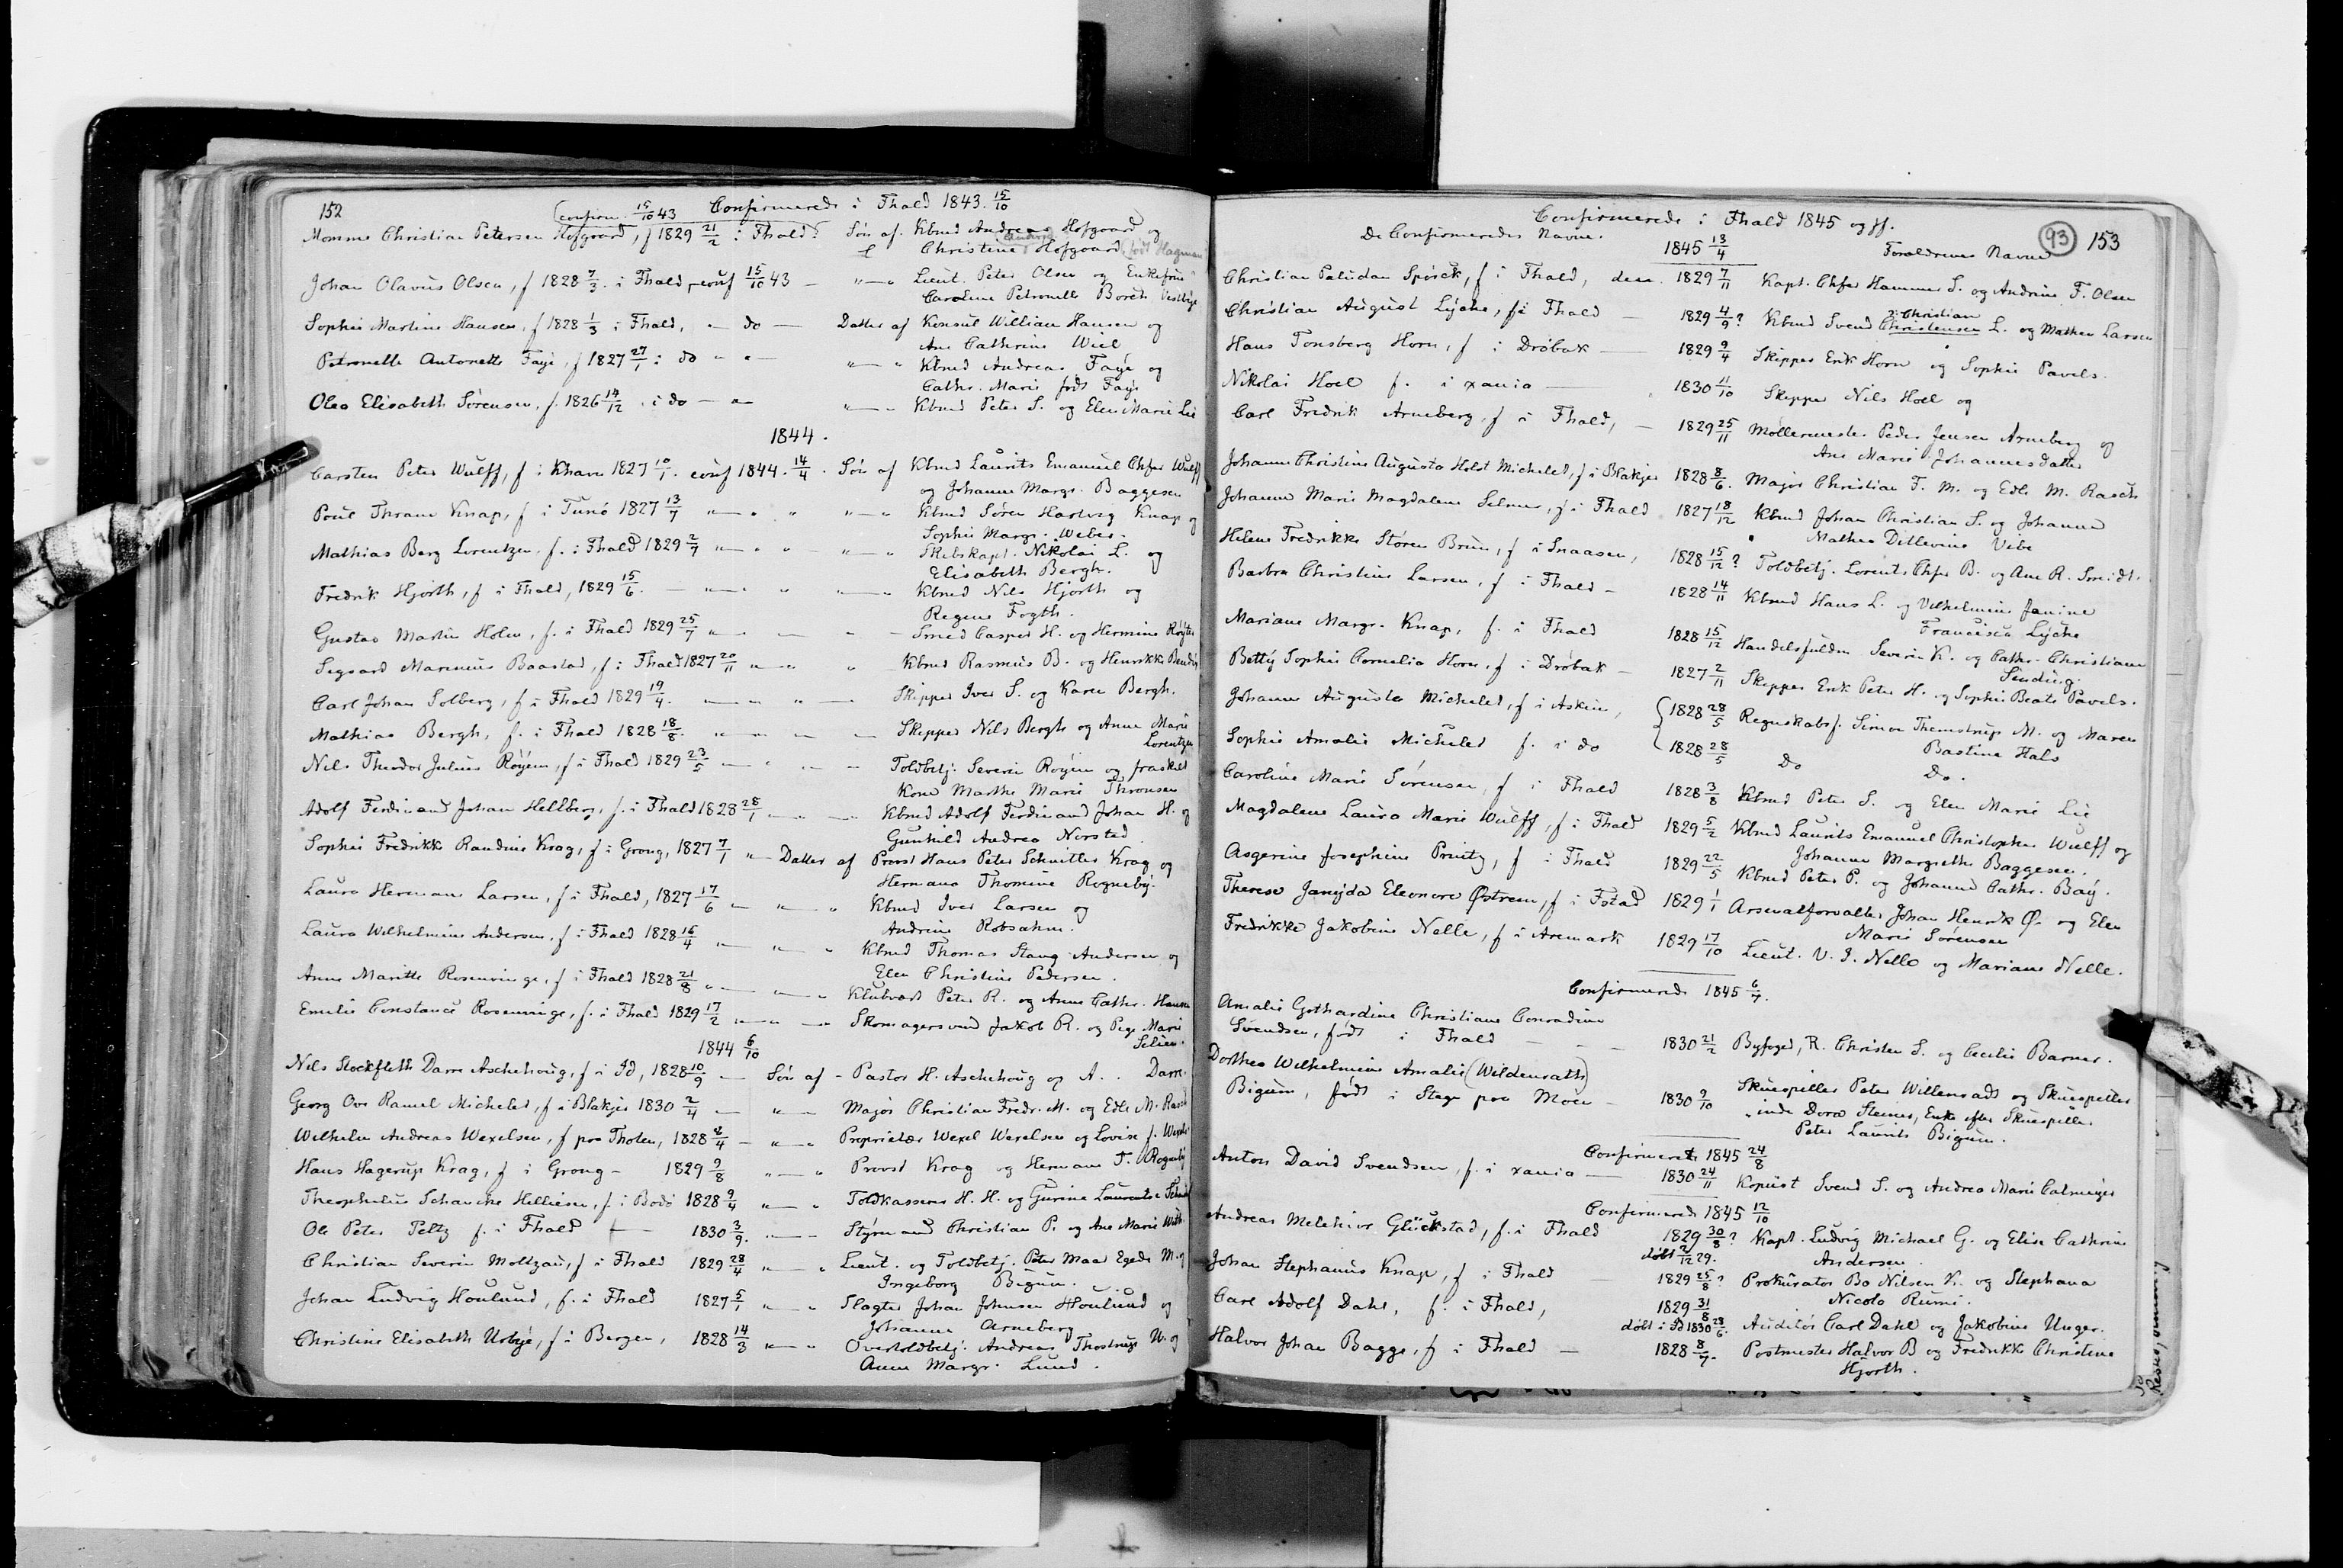 152
(confirm. 15/10 43 Confirmerede i Fhald 1843. 15/10
Momme Christian Petersen Hofgaard, f 1829 21/2 i Fhald. Søn af Kbmd Andreas Hofgaard og
Christine Hofgaard (født Hagman
Johan Olavus Olsen, f 1828 7/3. i Fhald, conf 15/10 43 — "—" Lieut. Peter Olsen og Enkefru
Caroline Petronelle Borch
Sophie Martine Hansen, f 1828 1/3 i Fhald, — do — Datter af Konsul William Hansen og
Ane Cathrine Wiel
Petronelle Antonette Faye, f 1827 27/1 i do " " — "—" Kbmd Andreas Faye og
Cathr. Marie født Faye
Olea Elisabeth Sørensen, f. 1826 14/12 i do — "—" Kbmd Peter S. og Elen Marie Lie
1844.
Carsten Peter Wulff, f i Khavn 1827 10/1. conf 1844. 14/4. Søn af Kbmd Laurits Emanuel Chfer Wulff
og Johanne Margr. Baggesen
Poul Thrane Knap, f i Tunø 1827 13/7 "—" " "—" Kbmd Søren Hartvig Knap og
Sophie Margr. Weber.
Mathias Berg Lorentzen, f. i Fhald 1829 2/7 "—" " "—" Skibskapt. Nikolai L. og
Elisabeth Bergh.
Fredrik Hjorth, f i Fhald, 1829 15/6. — "—" " "—" Kbmd Nils Hjorth og
Regine Fogth.
Gustav Martin Holm, f. i Fhald 1829 25/7 "—" — Smed Casper H. og Hermine
Segvard Marenius Baastad, f i Fhald 1827 20/11 "—" " Kbmd Rasmus B. og Henrikke
Carl Johan Solberg, f i Fhald 1829 19/4. — " " — Skipper Iver S. og Karen Bergh.
Mathias Bergh, f. i Fhald 1828 18/8. "—" — — Skipper Nils Bergh og Anne Marie
Lorentzen
Nils Theodor Julius Røyem, f i Fhald 1829 23/5 — " — — Toldbetj. Severin Røyem og fraskilt
Kone Marthe Marie Thronsen
Adolf Ferdinand Johan Hellberg, f. i Fhald 1828 28/1 — " — Kbmd Adolf Ferdinand Johan H. og
Gunhild Andrea Norstad
Sophie Fredrikke Randine Krag, f i Grong, 1827 7/1 "— Datter af Provst Hans Peter Schnitler Krag og
Hermana Thomine Rogneby.
Laura Hermana Larsen, f i Fhald, 1827 17/6 — " — " Kbmd Iver Larsen og
Andrine Robsahm.
Laura Wilhelmine Andersen, f i Fhald 1828 16/4 — " — " Kbmd Thomas Stang Andersen og
Elen Christine Pedersen.
Anne Maritte Rosenvinge, f i Fhald 1828 21/8 "— — " Klubvært Peter R. og Anne Cathr. Hansen
Emilie Constance Rosenvinge, f. i Fhald 1829 17/2 — " — " Skomagersvend Jakob R. og Pege Marie
1844 6/10
Nils Stockfleth Darre Aschehoug, f i Id, 1828 10/9 — Søn af - Pastor H. Aschehoug og A. . Darre.
Georg Ove Ramel Michelet, f i Blakjer 1830 2/4 — "—" Major Christian Fredr. M. og Edle M. Rasch
Wilhelm Andreas Wexelsen, f paa Thoten, 1828 2/4 — "—" Proprietær Wexel Wexelsen og Lovise f. Wexels
Hans Hagerup Krag, f i Grong - 1829 9/8 "—" Provst Krag og Hermana T. Rogneby
Theophilus Schancke Helliesen, f. i Bodø 1828 9/4 "—" Toldkasserer H. H. og Gurine Laurentze
Ole Peter Peltz f. i Fhald — 1830 3/9. "—" Styrmand Christian P. og Ane Marie With
Christian Severin Moltzau, f i Fhald 1829 28/4 "—" Lieut. og Toldbetj. Peter Maar Egede M. og
Ingeborg Bigum.
Johan Ludvig Houlund, f. i Fhald 1827 5/1 "—" Slagter Johan Johnsen Houlund og
Johanne Arneberg
Christine Elisabeth Urbye, f i Bergen, 1828 14/3 "—" Overtoldbetj. Andreas Thostrup U. og
Anne Margr. Lund.
Confirmerede i Fhald 1845 og ff.
(93) 153
De Confirmeredes Navne. 1845 13/4 Forældrenes Navne
Christian Paludan Spørck, f i Fhald, den 1829 7/11 Kapt. Chfer Hammer S. og Andrine F. Olsen
ɔ: Christian
Christian August Lyche, f i Fhald — 1829 4/9? Kbmd Svend Christensen L. og Mathea Larsen
Hans Tonsberg Horn, f i Drøbak — 1829 9/4 Skipper Erik Horn og Sophie Pavels.
Nikolai Hoel f. i xania — 1830 11/10 Skipper Nils Hoel og
Carl Fredrik Arneberg, f i Fhald, — 1829 25/11 Møllermester Peder Jensen Arneberg og
Ane Marie Johannesdatter
Johanne Christine Augusta Holst Michelet, f i Blakjer 1828 8/6. Major Christian F. M. og Edle M. Rasch
Johanne Marie Magdalene Selmer, f i Fhald 1827 18/12 Kbmd Johan Christian S. og Johanne
Mathea Ditlevine Vibe
Helene Fredrikke Støren Brun, f i Snaasen, 1828 15/12? Toldbetj. Lorents Chfer B. og Ane R. Smidt.
Barbra Christine Larsen, f i Fhald - 1828 14/11 Kbmd Hans L. og Vilhelmine Janine
Francisca Lyche
Mariane Margr. Knap, f. i Fhald 1828 15/12 Handelsfuldm Severin K. og Cathr. Christiane
Sending.
Betty Sophie Cornelia Horn, f i Drøbak — 1827 2/11 Skipper Erik Peter H. og Sophie Beate Pavels.
Johanne Augusta Michelet, f i Askim, 1828 28/5 Regnskabsf. Simon Themstrup M. og Maren
Bastine Hals
Sophie Amalie Michelet f. i do 1828 28/5 Do Do.
Caroline Marie Sørensen, f i Fhald 1828 3/8 Kbmd Peter S. og Elen Marie Lie
Magdalene Laura Marie Wulff, f i Fhald 1829 5/2 Kbmd Laurits Emanuel Christopher Wulff og
Johanne Margrethe Baggesen.
Asgerine Josephine Printz, f i Fhald 1829 22/5 Kbmd Peter P. og Johanne Cathr. Bay.
Therese Janyda Eleonore Østrem, f i Fstad 1829 1/1 Arsenalforvalter Johan Henrik Ø. og Elen
Marie Sørensen
Fredrikke Jakobine Nelle, f i Aremark 1829 17/10 Lieut. V. J. Nelle og Mariane Nelle.
Confirmerede 1845 6/7.
Amalie Gothardine Christiane Conradine
Svendsen, født i Fhald — — 1830 21/2 Byfoged, R. Christen S. og Cecilie Barner.
Dorthea Wilhelmine Amalie (Wildenrath)
Bigum, født i Stege paa Møen — 1830 9/10 Skuespiller Peter Willenradt og Skuespiller
"inde Dora Steines, Enke efter Skuespiller
Peter Laurits Bigum.
Confirmeret 1845 24/8
Anton David Svendsen, f. i xania — 1830 24/11 Kopiist Svend S. og Andrea Marie Calmeyer
Confirmerede 1845 12/10
Andreas Melchior Glückstad, f. i Fhald 1829 30/8? Kapt. Ludvig Michael G. og Elise Cathrine
døbt 2/12 29. Andersen.
Johan Stephanus Knap, f i Fhald 1829 25/8? Prokurator Bo Nilsen K. og Stephana
Nicolo Rumi.
Carl Adolf Dahl, f. i Fhald, 1829 31/8
døbt i Id 1830 28/6. Auditør Carl Dahl og Jakobine Unger.
Halvor Johan Bagge, f i Fhald — 1828 8/7. Postmester Halvor B og Fredrikke Christine
Hjorth.